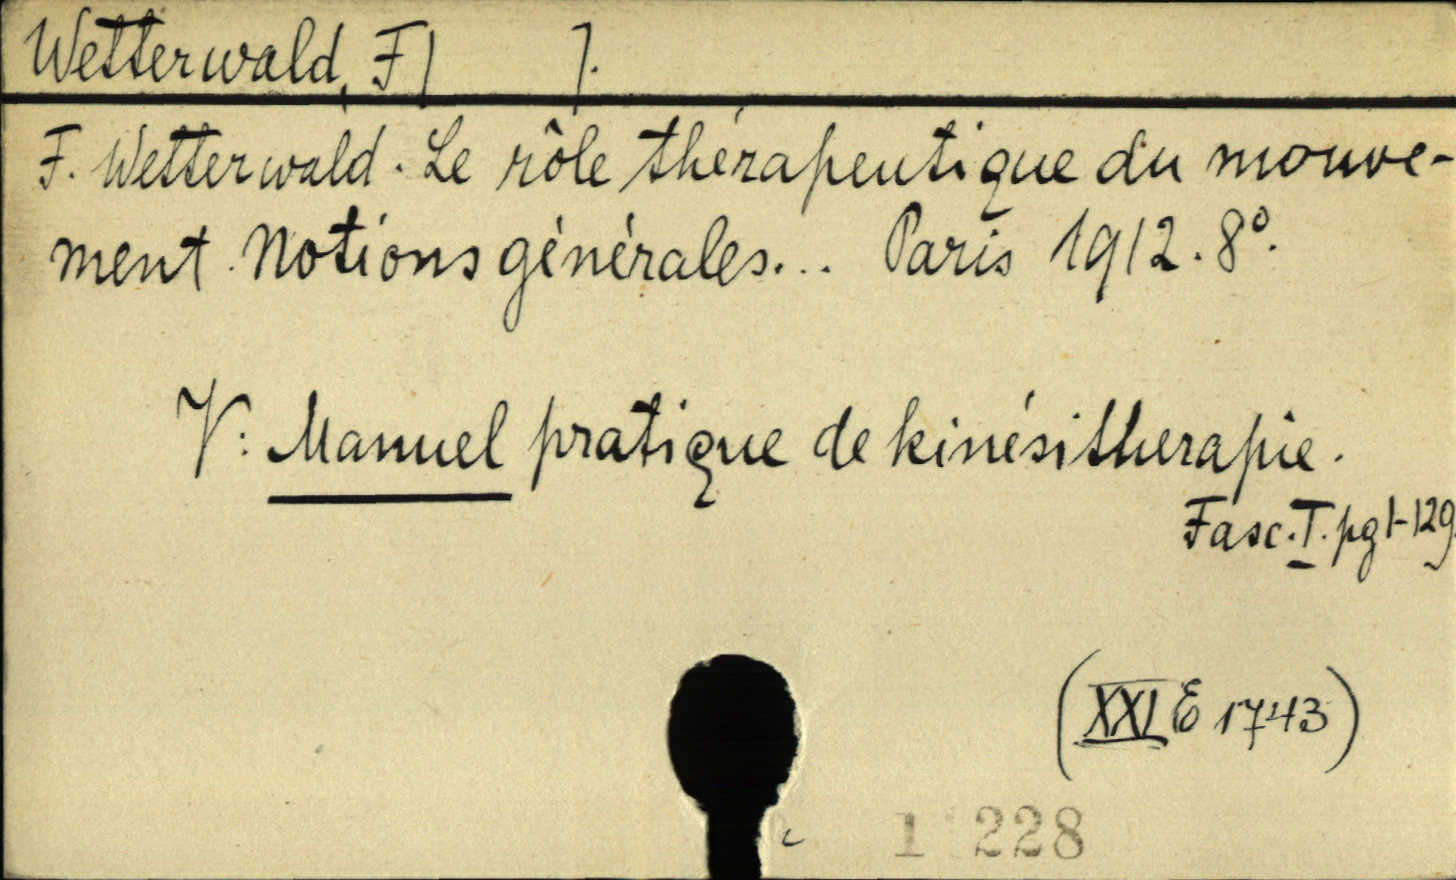 Wetterwald, F] 7.
F. Wetterwald. Le rôle thérapeutique du mouve-
ment. Notions générales... Paris 1912. 8º.
V: Manuel pratique de kinésitherapie.
Fasc. I. pg 1-129.
(XXI E 1743)
1 228